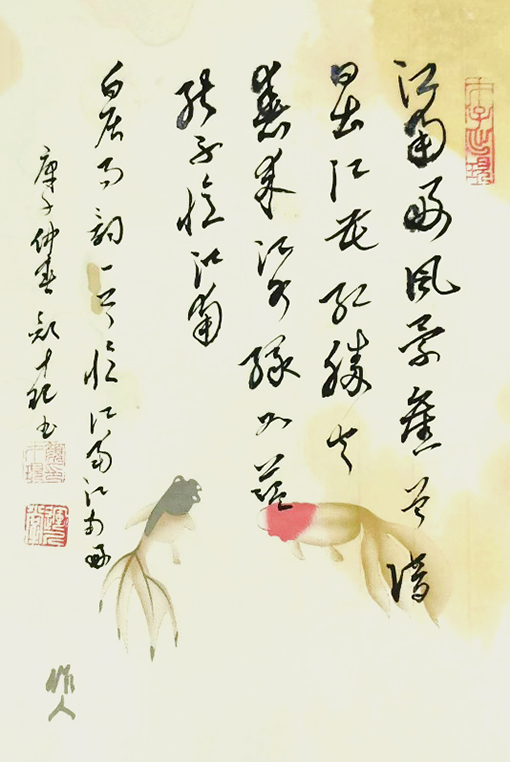 江南好風景舊曾諳
日出江花紅勝火
春來江水綠如藍
能不憶江南
白居易詞一首憶江南江南好
庚子仲春
書
作人